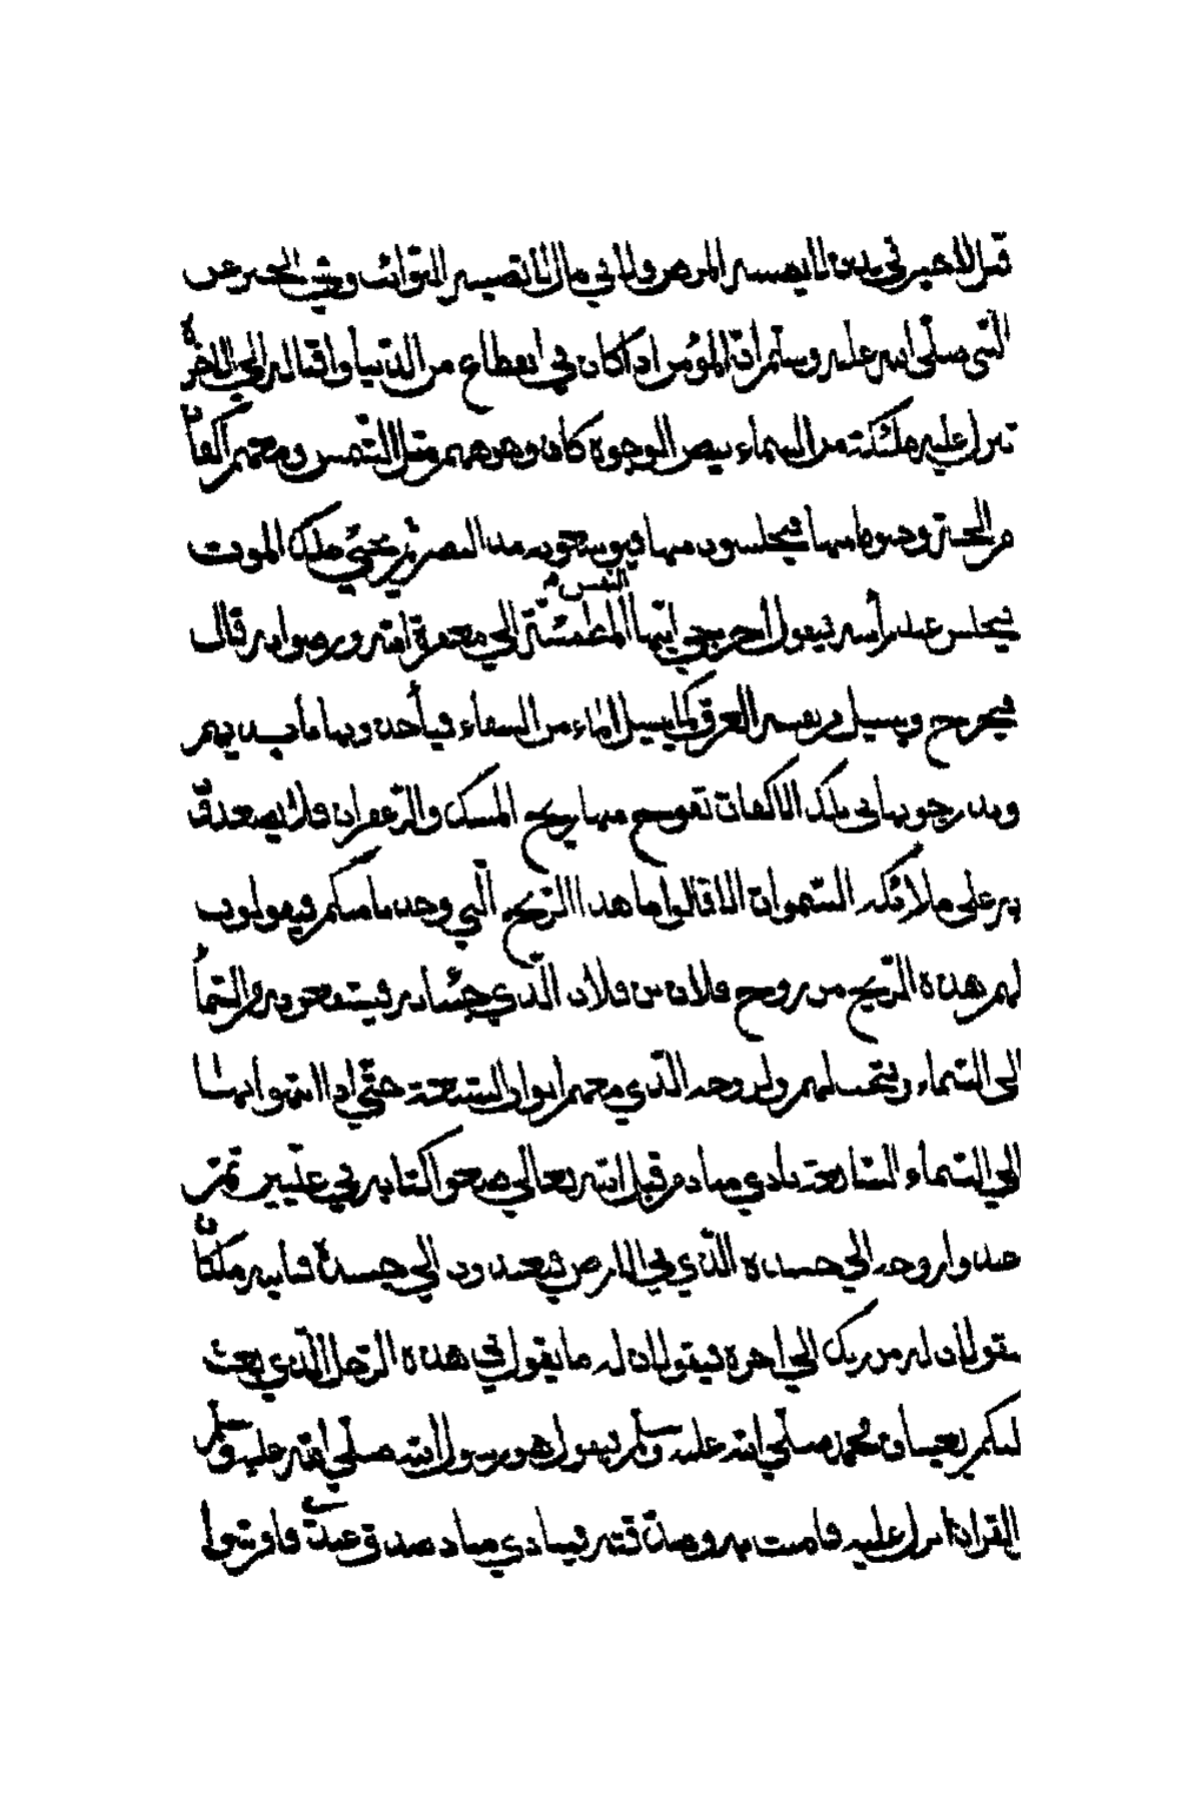 قيل لا خير في بدن لا يصيبه المرض ولا في مال لا تصيبه النوائب وفي الخبر عن
النبي صلى الله عليه وسلم أنّ المؤمن اذا كان في انقطاع من الدنيا واقبال الى الاخرة
تنزل عليه ملئكة من السماء بيض الوجوه كان وجوههم مثل الشمس ومعهم أكفان
من الجنة وحنوط منها فيجلسون منها مد البصر ثم يجيئ ملك الموت
فيجلس عند رأسه فيقول اخرجي ايتها النفس المطمئنة الى مغفرة الله ورضوانه قال
فيخرج ويسيل من نفسه العرق كما يسيل الماء من السقاء فيأخذونها
ويدرجونها في تلك الاكفان تفوح منها ريح المسك والزعفران فلا يصعدون
به على ملائكة السموات الا قالوا ما هذا الريح التي وجدنا منكم فيقولون
لهم هذه الريح من روح فلان بن فلان الذي جئنا به فيستفتحون من السماء
الى السماء ويفتح لهم ولروحه الذي معهم ابواب السبعة حتى اذا انتهوا
الى السماء السابعة نادي مناد من قبل الله تعالى ضعوا كتابه في عليين ثم
ردوا روحه الى جسده الذي في الارض فيعيدون الى جسده فيأتيه ملكان
فيقولان له من ربك الى اخره فيقولان له ما يقول في هذه الرجل الذي بعث
لكم يعنيان محمد صلى الله عليه وسلم فيقول هو رسول الله صلى الله عليه وسلم
القرآن انزل عليه فامنت به وصدقته فينادي مناد صدق عبدي فافرشوا